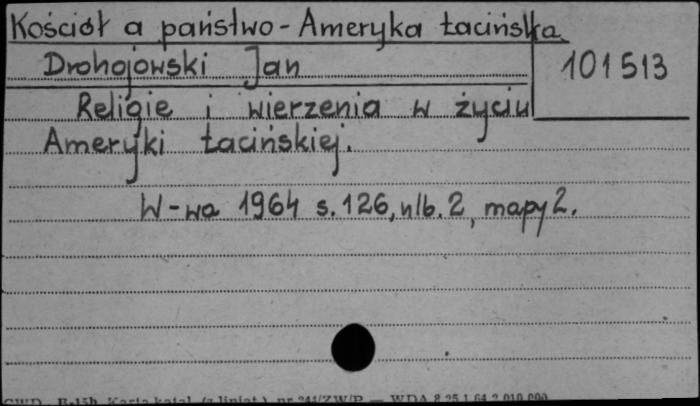 Kościół a państwo - Ameryka Łacińska
Drohojowski Jan
101513
Religie i wierzenia w życiu
Ameryki Łacińskiej.
W-wa 1964 s. 126, nlb. 2, mapy 2.
Karta katal. (z liniat.) nr 244/ZW/P — WDA